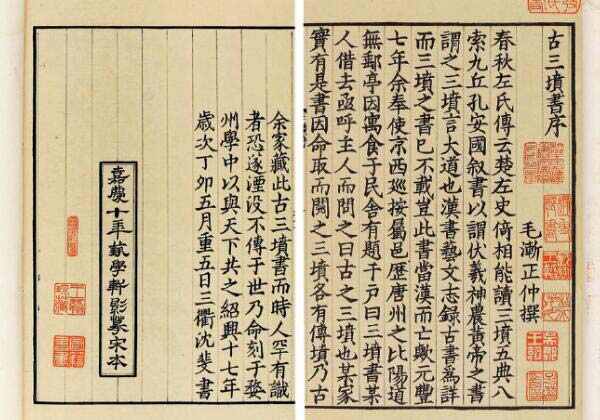 古三墳書序
毛漸正仲撰
春秋左氏傳云楚左史倚相能讀三墳五典八
索九丘孔安國叙書以謂伏羲神農黄帝之書
謂之三墳言大道也漢書藝文志錄古書為詳
而三墳之書已不載豈此書當漢而亡歟元豐
七年余奉使京西巡按屬邑歷唐州之比陽道
無郵亭因寓食于民舍有題于戶曰三墳書某
人借去亟呼主人而問之曰古之三墳也某家
實有是書因命取而閱之三墳各有傳墳乃古
余家藏此古三墳書而時人罕有識
者恐遂湮没不傳于世乃命刻于婺
州學中以與天下共之紹興十七年
歲次丁卯五月重五日三衢沈斐書
嘉慶十年蓺學軒影摹宋本